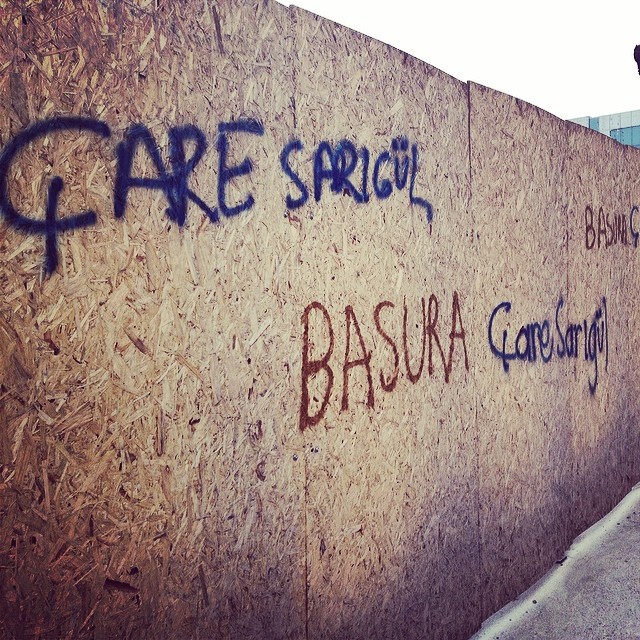 ÇARE SARIGÜL
BASURA Çare Sarıgül
BASURA Ç